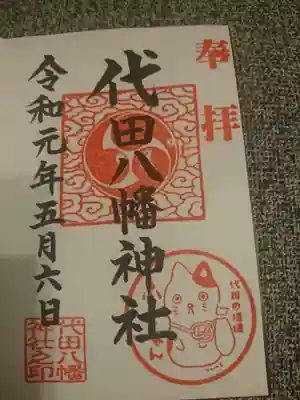 奉拝
代田八幡神社
令和元年五月六日
代田八幡
神社之印
代田の道標